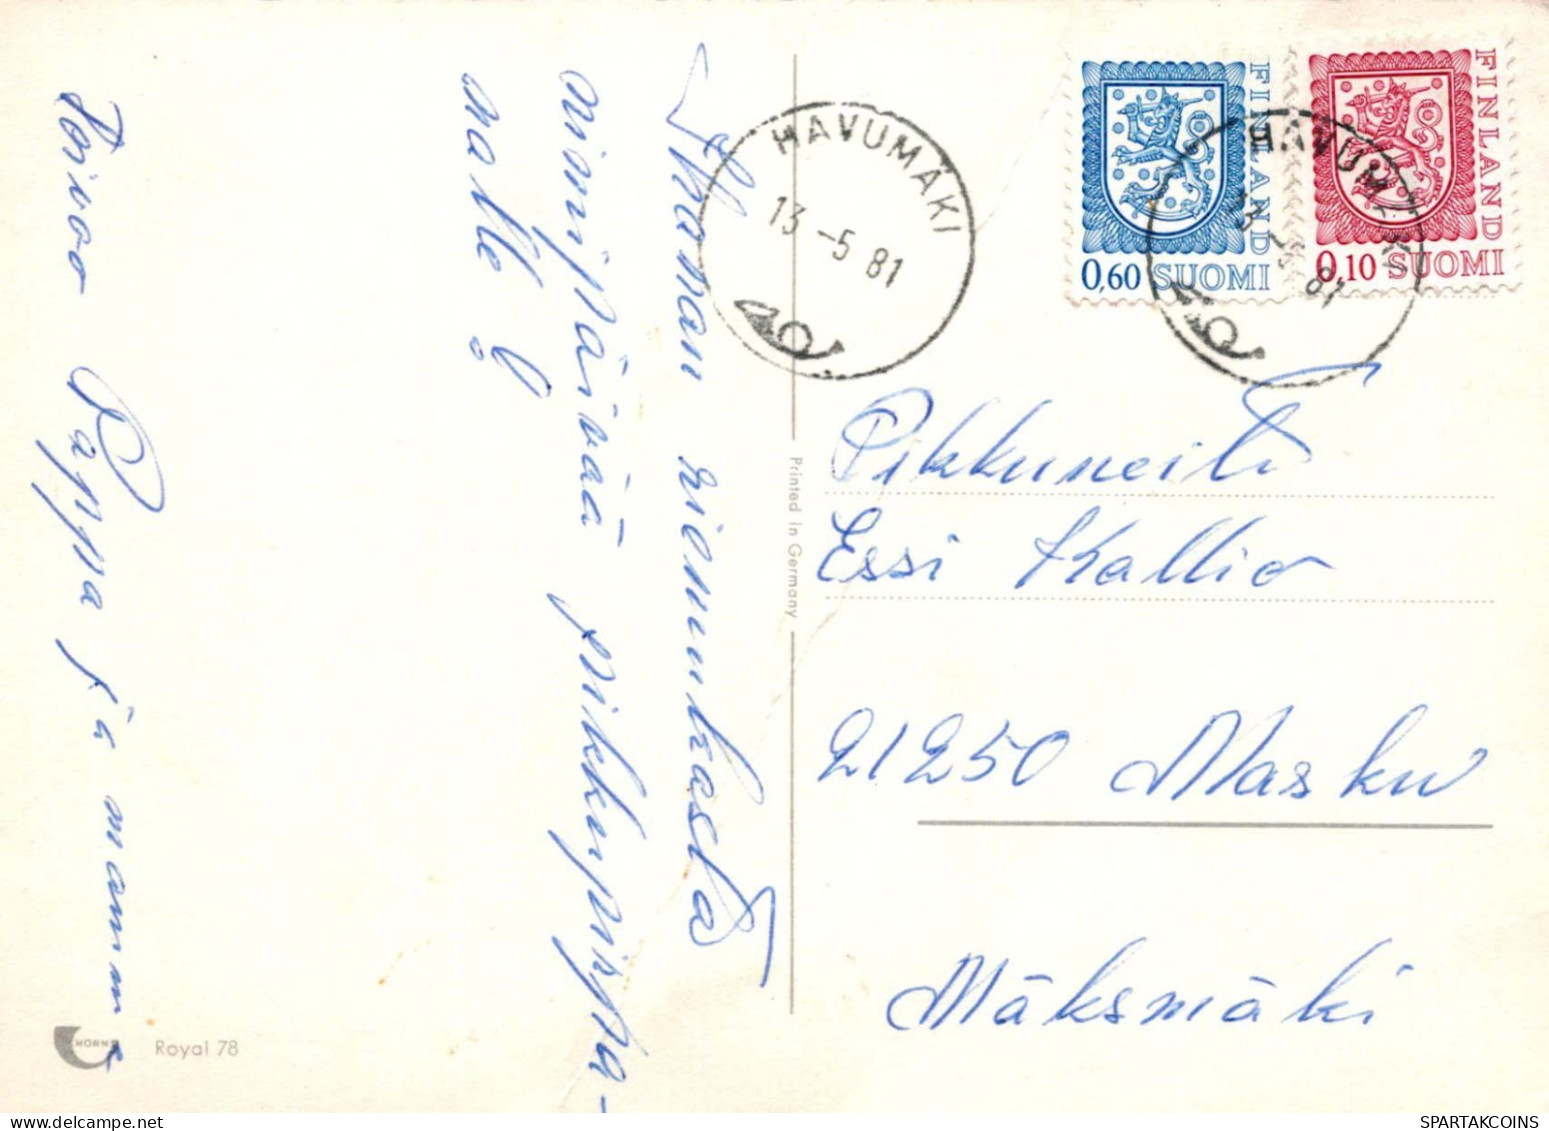 Ihanan riemukasta
nimipäivää pikkupippa-
nalle!
Toivoo Pappa ja mamma
HAVUMÄKI
13 -5 81
FINLAND
0,60 SUOMI
FINLAND
0,10 SUOMI
HAVUMÄKI
13 -5 81
Printed in Germany
Pikkuneiti
Essi Kallio
21250 Masku
Mäksmäki
HORN
Royal 78
SPARTAKCOINS